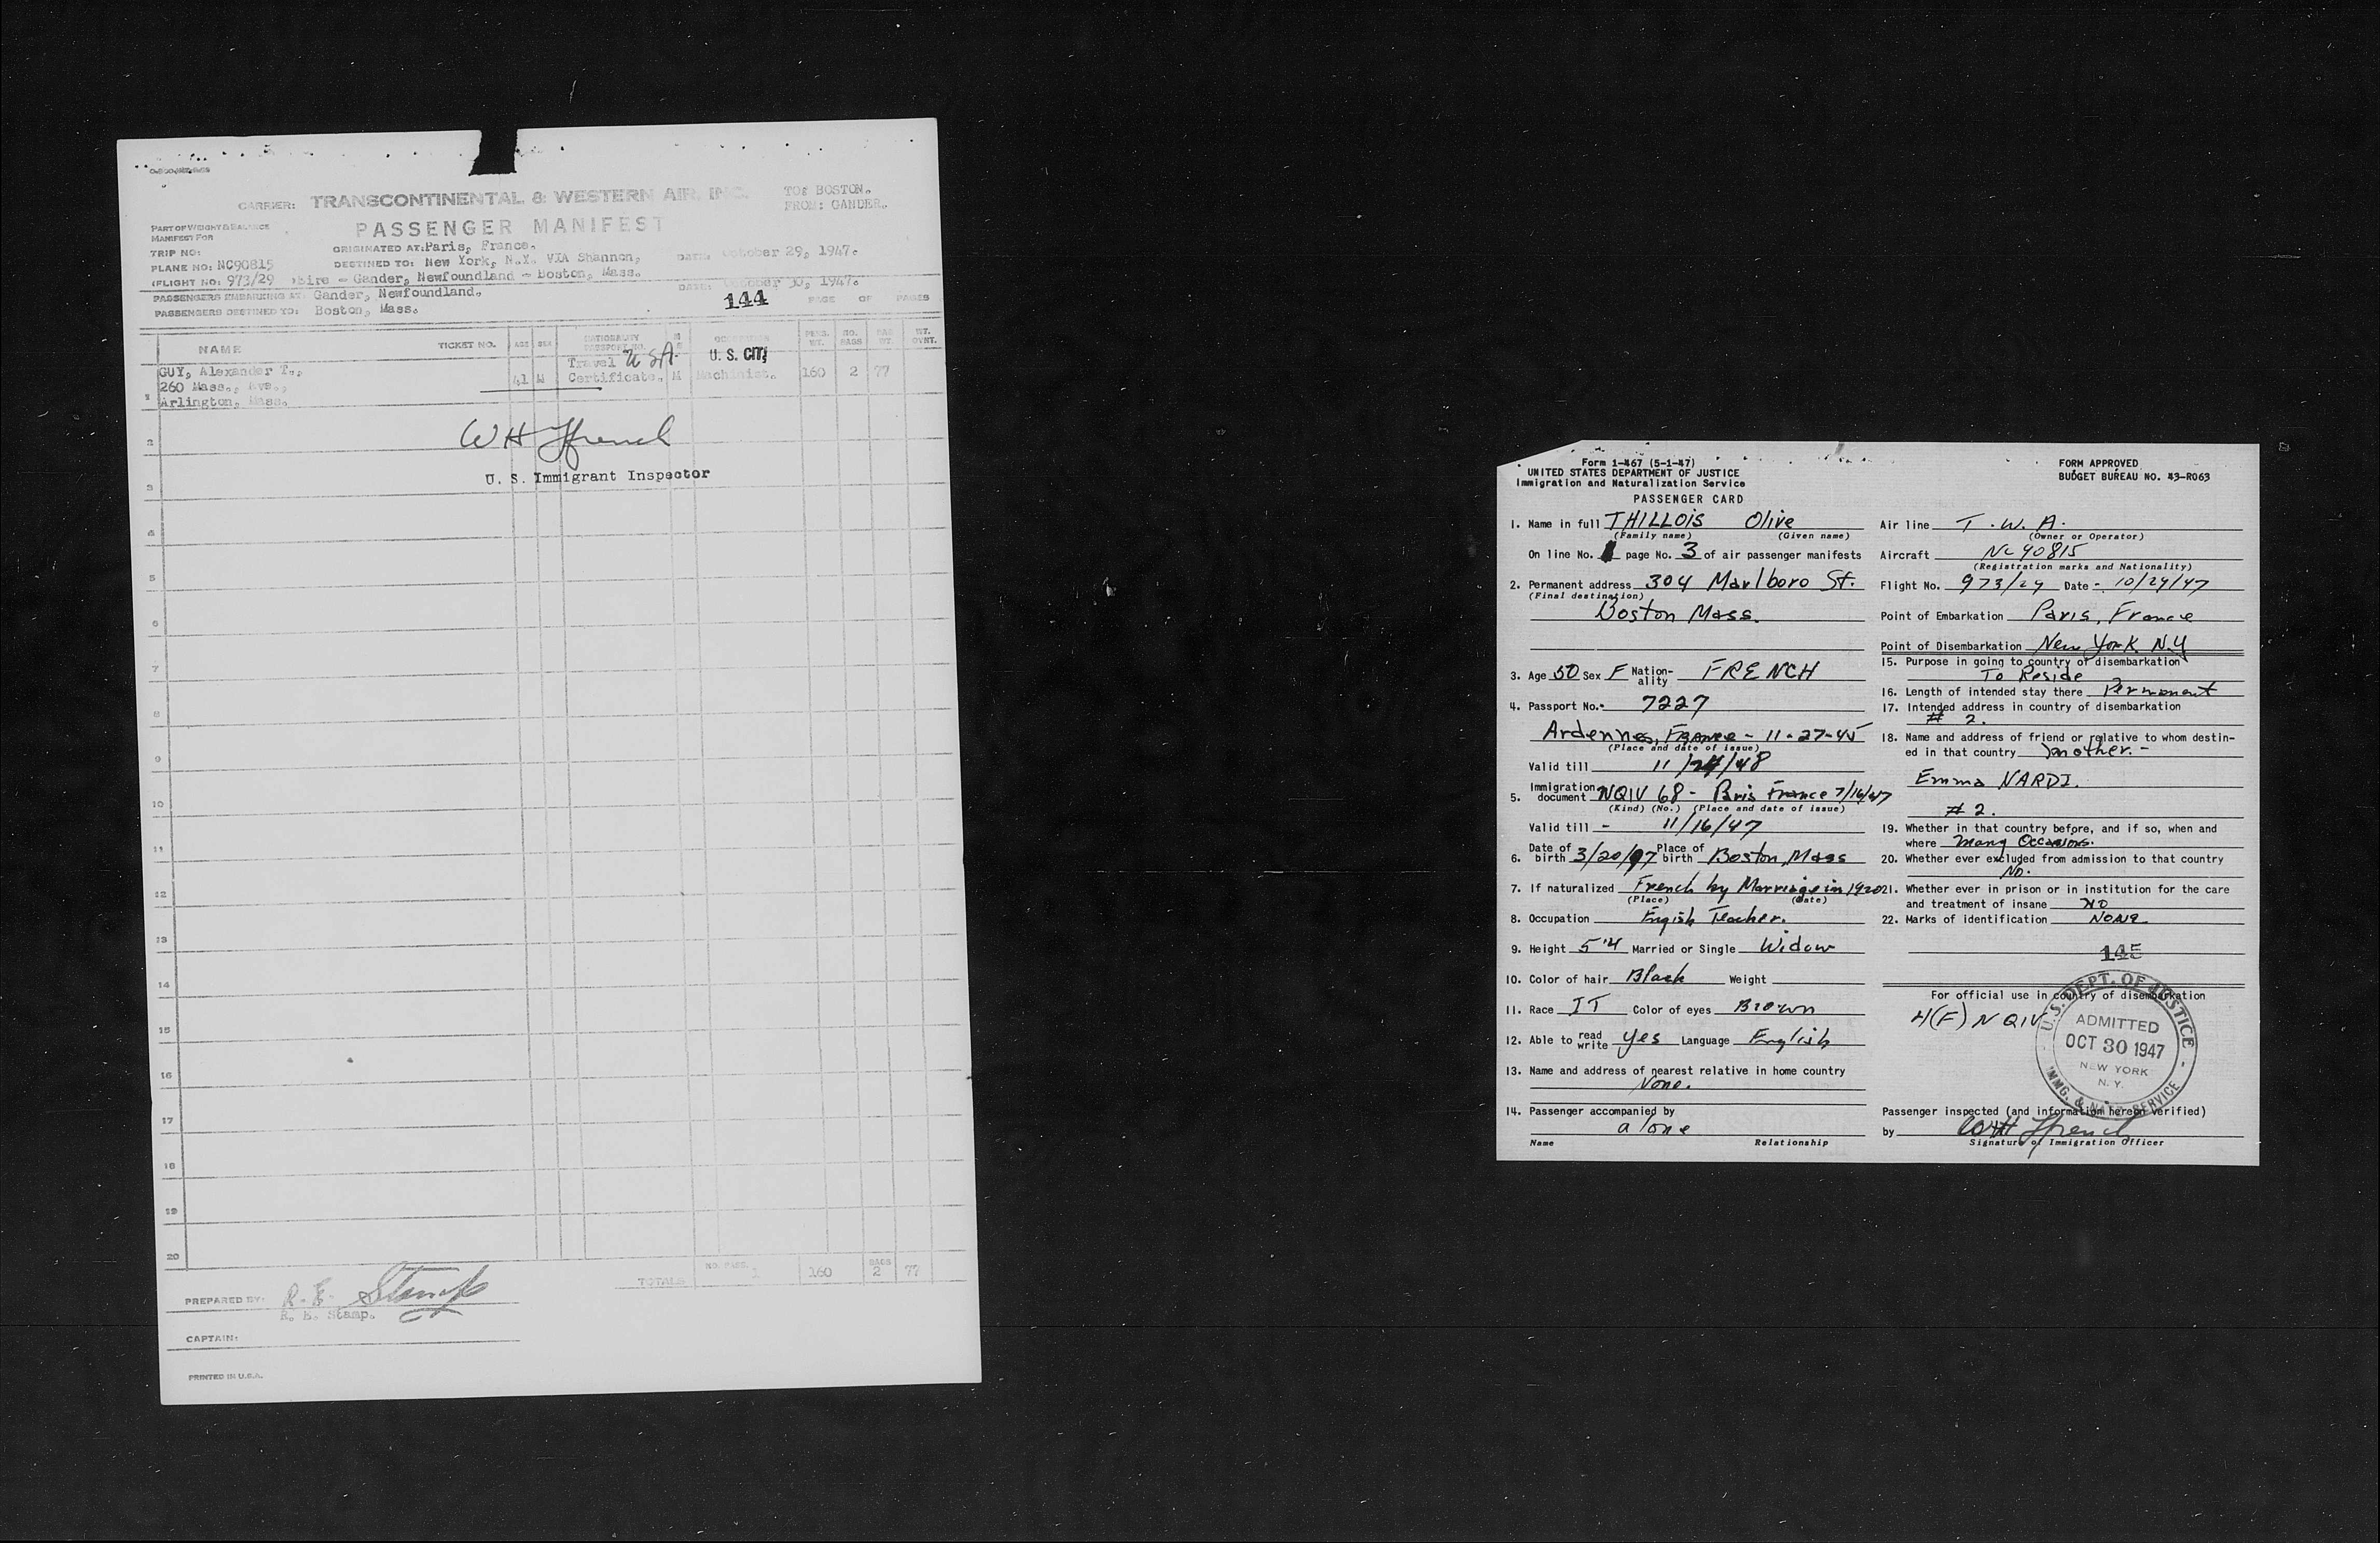 CARRIER: TRANSCONTINENTAL & WESTERN AIR, INC.
TO: BOSTON.
FROM: GANDER.
PASSENGER MANIFEST
PART OF WEIGHT & BALANCE
MANIFEST FOR
ORIGINATED AT: Paris, France.
TRIP NO:
DESTINED TO: New York, N.Y. VIA Shannon,
DATE: October 29, 1947.
PLANE NO: NC90815
FLIGHT NO: 973/29 Eire - Gander, Newfoundland - Boston, Mass.
DATE: October 30, 1947.
PASSENGERS EMBARKING AT: Gander, Newfoundland.
144 PAGE OF PAGES
PASSENGERS DESTINED TO: Boston, Mass.
NAME TICKET NO. AGE SEX NATIONALITY PASSPORT NO. M S OCCUPATION PERS. WT. NO. BAGS BAG WT. WT. OVNT.
GUY, Alexander T., Travel USA. U.S. CIT.
260 Mass., Ave., 41 M Certificate. M Machinist. 160 2 77
1 Arlington, Mass.
2
WH Ffrench
3
U. S. Immigrant Inspector
4
5
6
7
8
9
10
11
12
13
14
15
16
17
18
19
20
TOTALS NO. PASS. 1 160 BAGS 2 77
PREPARED BY: R. E. Stamp
R. E. Stamp.
CAPTAIN:
PRINTED IN U.S.A.
Form I-467 (5-1-47)
UNITED STATES DEPARTMENT OF JUSTICE
Immigration and Naturalization Service
FORM APPROVED
BUDGET BUREAU NO. 43-R063
PASSENGER CARD
1. Name in full THILLOIS Olive
(Family name) (Given name)
On line No. 1 page No. 3 of air passenger manifests
2. Permanent address 304 Marlboro St.
(Final destination)
Boston Mass.
3. Age 50 Sex F Nationality FRENCH
4. Passport No. 7227
Ardennes, France - 11-27-45
(Place and date of issue)
Valid till 11/24/48
5. Immigration document NQIV 68 - Paris France 7/16/47
(Kind) (No.) (Place and date of issue)
Valid till - 11/16/47
6. Date of birth 3/20/97 Place of birth Boston, Mass
7. If naturalized French by Marriage in 1920
(Place) (Date)
8. Occupation Engish Teacher.
9. Height 5'4 Married or Single Widow
10. Color of hair Black Weight
11. Race IT Color of eyes Brown
12. Able to read write yes Language English
13. Name and address of nearest relative in home country
None.
14. Passenger accompanied by
alone
Name Relationship
Air line T.W.A.
(Owner or Operator)
Aircraft NC90815
(Registration marks and Nationality)
Flight No. 973/29 Date - 10/29/47
Point of Embarkation Paris, France
Point of Disembarkation New York N.Y
15. Purpose in going to country of disembarkation
To Reside
16. Length of intended stay there Permanent
17. Intended address in country of disembarkation
# 2.
18. Name and address of friend or relative to whom destin-
ed in that country mother. -
Emma NARDI.
# 2.
19. Whether in that country before, and if so, when and
where many Occasions.
20. Whether ever excluded from admission to that country
No.
21. Whether ever in prison or in institution for the care
and treatment of insane NO
22. Marks of identification None
145
For official use in country of disembarkation
4(F) NQIV
U.S. DEPT. OF JUSTICE
ADMITTED
OCT 30 1947
NEW YORK
N. Y.
IMMG. & NATZ. SERVICE
Passenger inspected (and information hereon verified)
by WH Ffrench
Signature of Immigration Officer